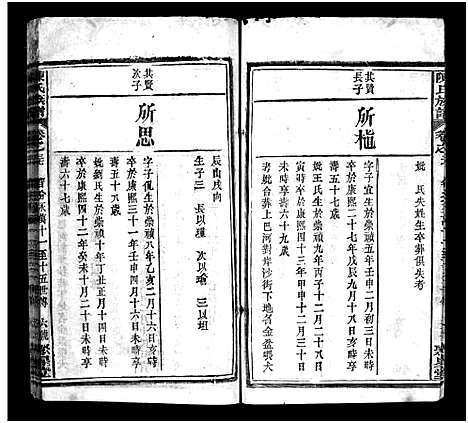 陳氏族譜
共賢長子
所植
妣 氏失姓生卒葬俱失考
字子宜生於崇禎五年壬申二月初三日
卒於康熙二十七年戊辰九月十六日享
壽五十七歲
妣王氏生於崇禎九年丙子十二月二十八日
卒於康熙四十三年甲申十二月二十三日
未時享壽六十九歲
考妣合葬上巴河對岸沙街下地名金盆張大
辰山戌向
生子三 長以瑾 次以瑜 三以垣
共賢次子
所思
字子 生於崇禎八年乙亥二月十六日亥時
卒於康熙三十一年壬申四月十六日未時享
壽五十八歲
妣劉氏生於崇禎十年丁丑正月十四日亥時
卒於康熙四十二年癸未十月二十日未時享
壽六十七歲
陳氏族譜 卷之 十一至十五世傳